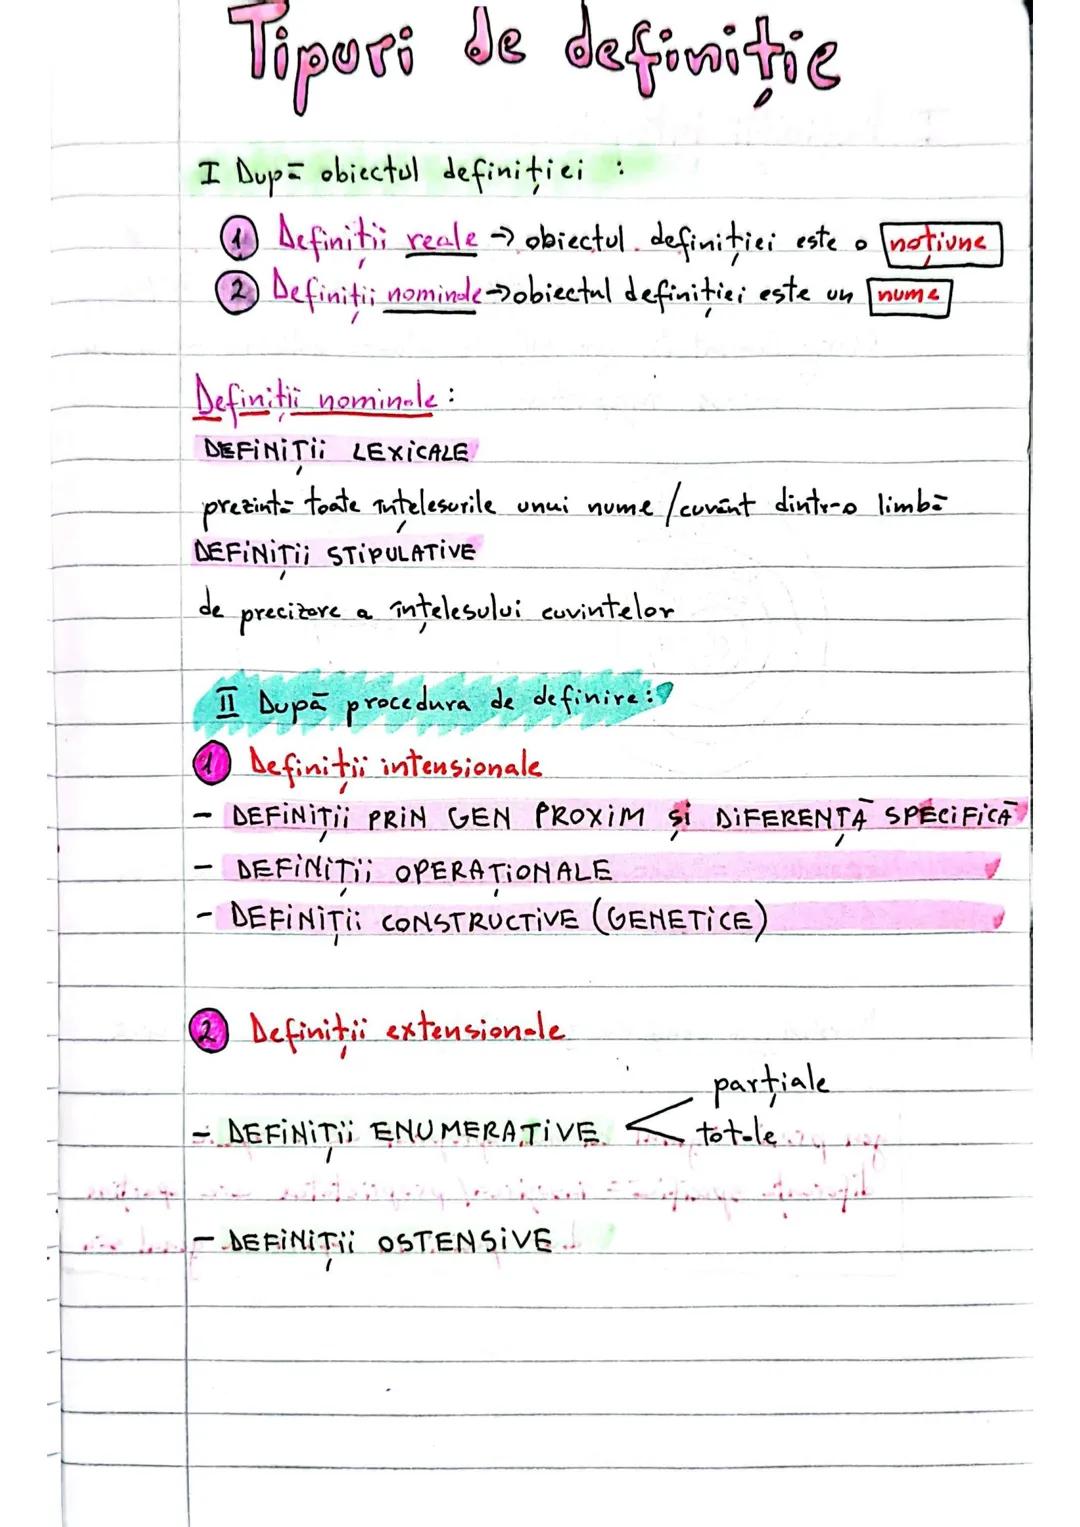 Tipuri de definiție
I După obiectul definiției :
1 Definiții reale → obiectul definiției este o noțiune
2 Definiții nominale → obiectul definiției este un nume
Definiții nominale :
DEFINIȚII LEXICALE
prezintă toate înțelesurile unui nume / cuvânt dintr-o limbă
DEFINIȚII STIPULATIVE
de precizare a înțelesului cuvintelor
II După procedura de definire :
1 Definiții intensionale
- DEFINIȚII PRIN GEN PROXIM și DIFERENȚĂ SPECIFICĂ
- DEFINIȚII OPERAȚIONALE
- DEFINIȚII CONSTRUCTIVE (GENETICE)
2 Definiții extensionale
parțiale
- DEFINIȚII ENUMERATIVE < totale
- DEFINIȚII OSTENSIVE